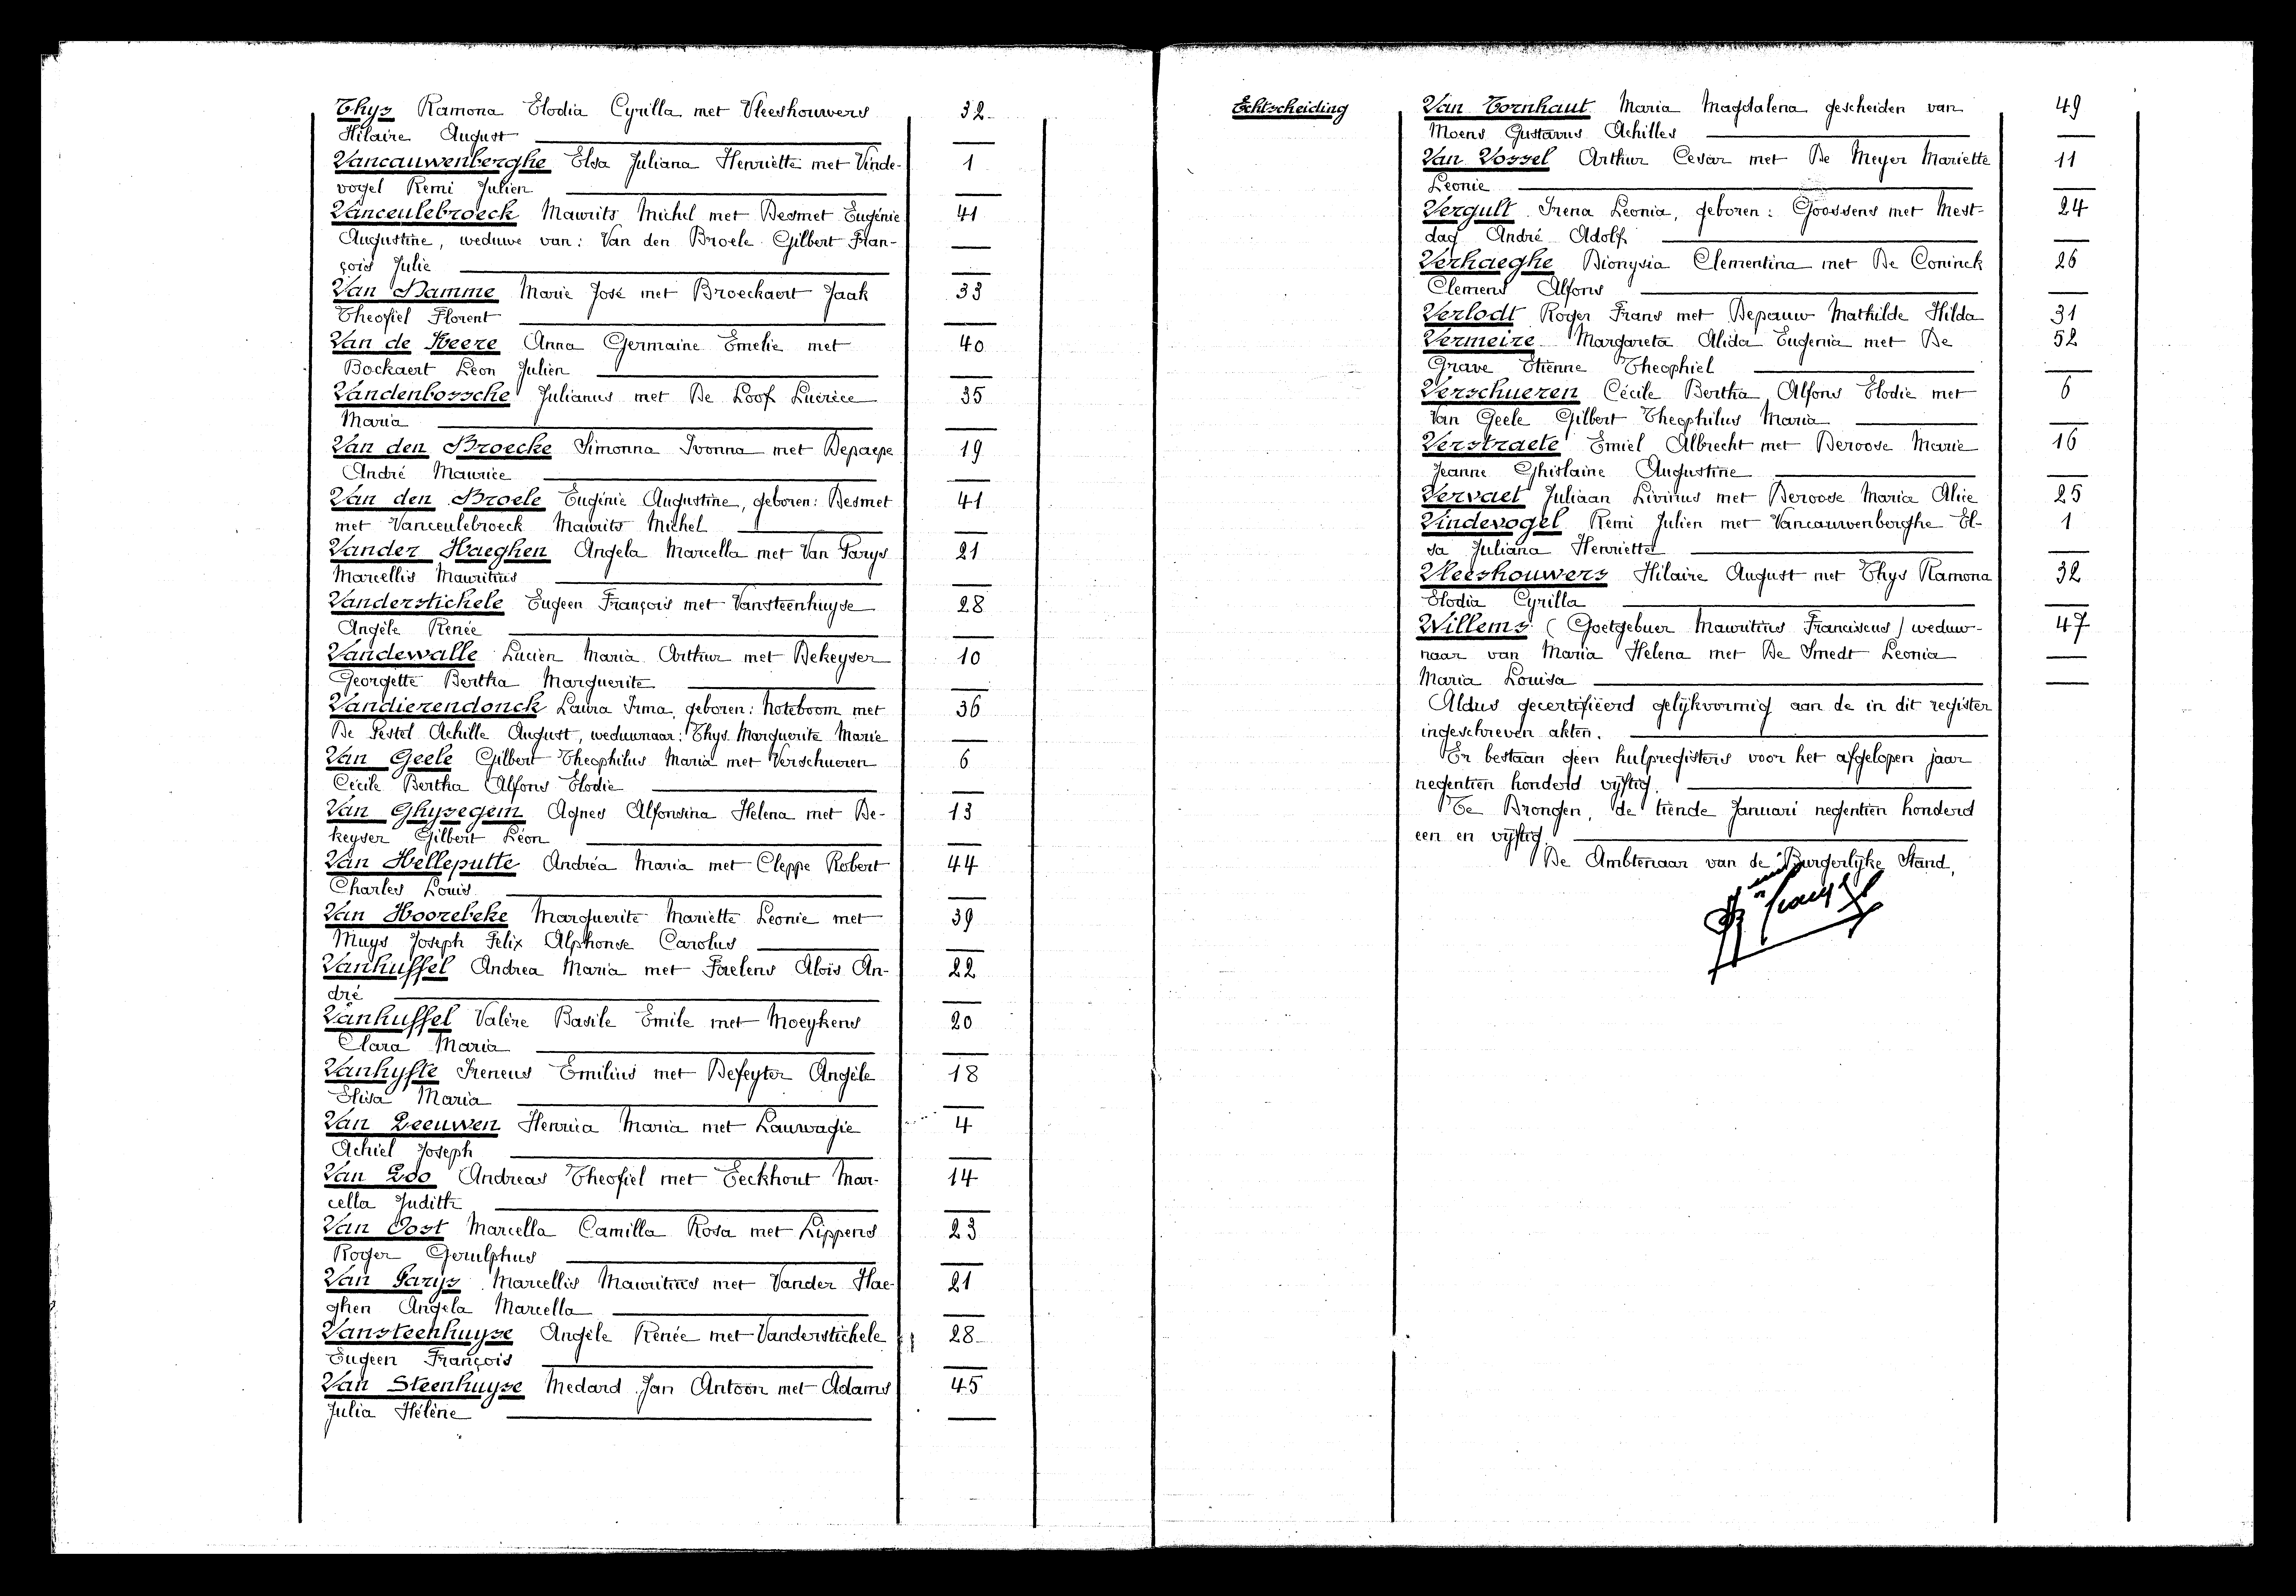 Thys Ramona Elodia Cyrilla met Vleeshouwers 32
Hilaire August
Vancauwenberghe Elsa Juliana Henriette met Vinde- 1
vogel Remi Julien
Vanceulebroeck Maurits Michel met Desmet Eugénie 41
Augustine, weduwe van: Van den Broele Gilbert Fran-
çois Julie
Van Damme Marie José met Broeckaert Jaak 33
Theofiel Florent
Van de Keere Anna Germaine Emelie met 40
Bockaert Léon Julien
Vandenbossche Julianus met De Loof Lucrice 35
Maria
Van den Broecke Simonna Ivonna met Depaepe 19
André Maurice
Van den Broele Eugénie Augustine, geboren: Desmet 41
met Vanceulebroeck Maurits Michel
Vander Haeghen Angela Marcella met Van Parys 21
Marcellis Mauritius
Vanderstichele Eugeen François met Vansteenhuyse 28
Angèle Renée
Vandewalle Lucien Maria Arthur met Dekeyser 10
Georgette Bertha Marguerite
Vandierendonck Laura Irma, geboren: Noteboom met 36
De Pestel Achille August, weduwnaar: Thys Marguerite Marie
Van Geele Gilbert Theophilus Maria met Verschueren 6
Cécile Bertha Alfons Elodie
Van Ghysegem Agnes Alfonsina Helena met De- 13
keyser Gilbert Léon
Van Helleputte Andréa Maria met Cleppe Robert 44
Charles Louis
Van Hoorebeke Marguerite Mariette Leonie met 39
Muys Joseph Felix Alphonse Carolus
Vanhuffel Andrea Maria met Faelens Aloïs An- 22
dré
Vanhuffel Valère Basile Emile met Moeykens 20
Clara Maria
Vanhyfte Ireneus Emilius met Defeyter Angèle 18
Elisa Maria
Van Leeuwen Henrica Maria met Lauwagie 4
Achiel Joseph
Van Loo Andreas Theofiel met Eeckhout Mar- 14
cella Judith
Van Oost Marcella Camilla Rosa met Lippens 23
Roger Gerulphus
Van Parys Marcellis Mauritius met Vander Hae- 21
ghen Angela Marcella
Vansteenhuyse Angèle Renée met Vanderstichele 28
Eugeen François
Van Steenhuyse Medard Jan Antoon met Adams 45
Julia Hélène
Echtscheiding Van Tornhaut Maria Magdalena gescheiden van 49
Moens Gustavus Achilles
Van Vossel Arthur Cesar met De Meyer Mariette 11
Leonie
Vergult Irena Leonia, geboren: Goossens met Mest- 24
dag André Adolf
Verhaeghe Dionysia Clementina met De Coninck 26
Clemens Alfons
Verlodt Roger Frans met Depauw Mathilde Hilda 31
Vermeire Margareta Alida Eugenia met De 52
Grave Etienne Theophiel
Verschueren Cécile Bertha Alfons Elodie met 6
Van Geele Gilbert Theophilus Maria
Verstraete Emiel Albrecht met Deroose Marie 16
Jeanne Ghislaine Augustine
Vervaet Juliaan Livinus met Deroose Maria Alice 25
Vindevogel Remi Julien met Vancauwenberghe El- 1
sa Juliana Henriette
Vleeshouwers Hilaire August met Thys Ramona 32
Elodia Cyrilla
Willems (Goetgebuer Mauritius Franciscus) weduw- 47
naar van Maria Helena met De Smedt Leonia
Maria Louisa
Aldus gecertifiëerd gelijkvormig aan de in dit register
ingeschreven akten.
Er bestaan geen hulpregisters voor het afgelopen jaar
negentien honderd vijftig.
Te Drongen, de tiende Januari negentien honderd
een en vijftig.
De Ambtenaar van de Burgerlijke Stand,